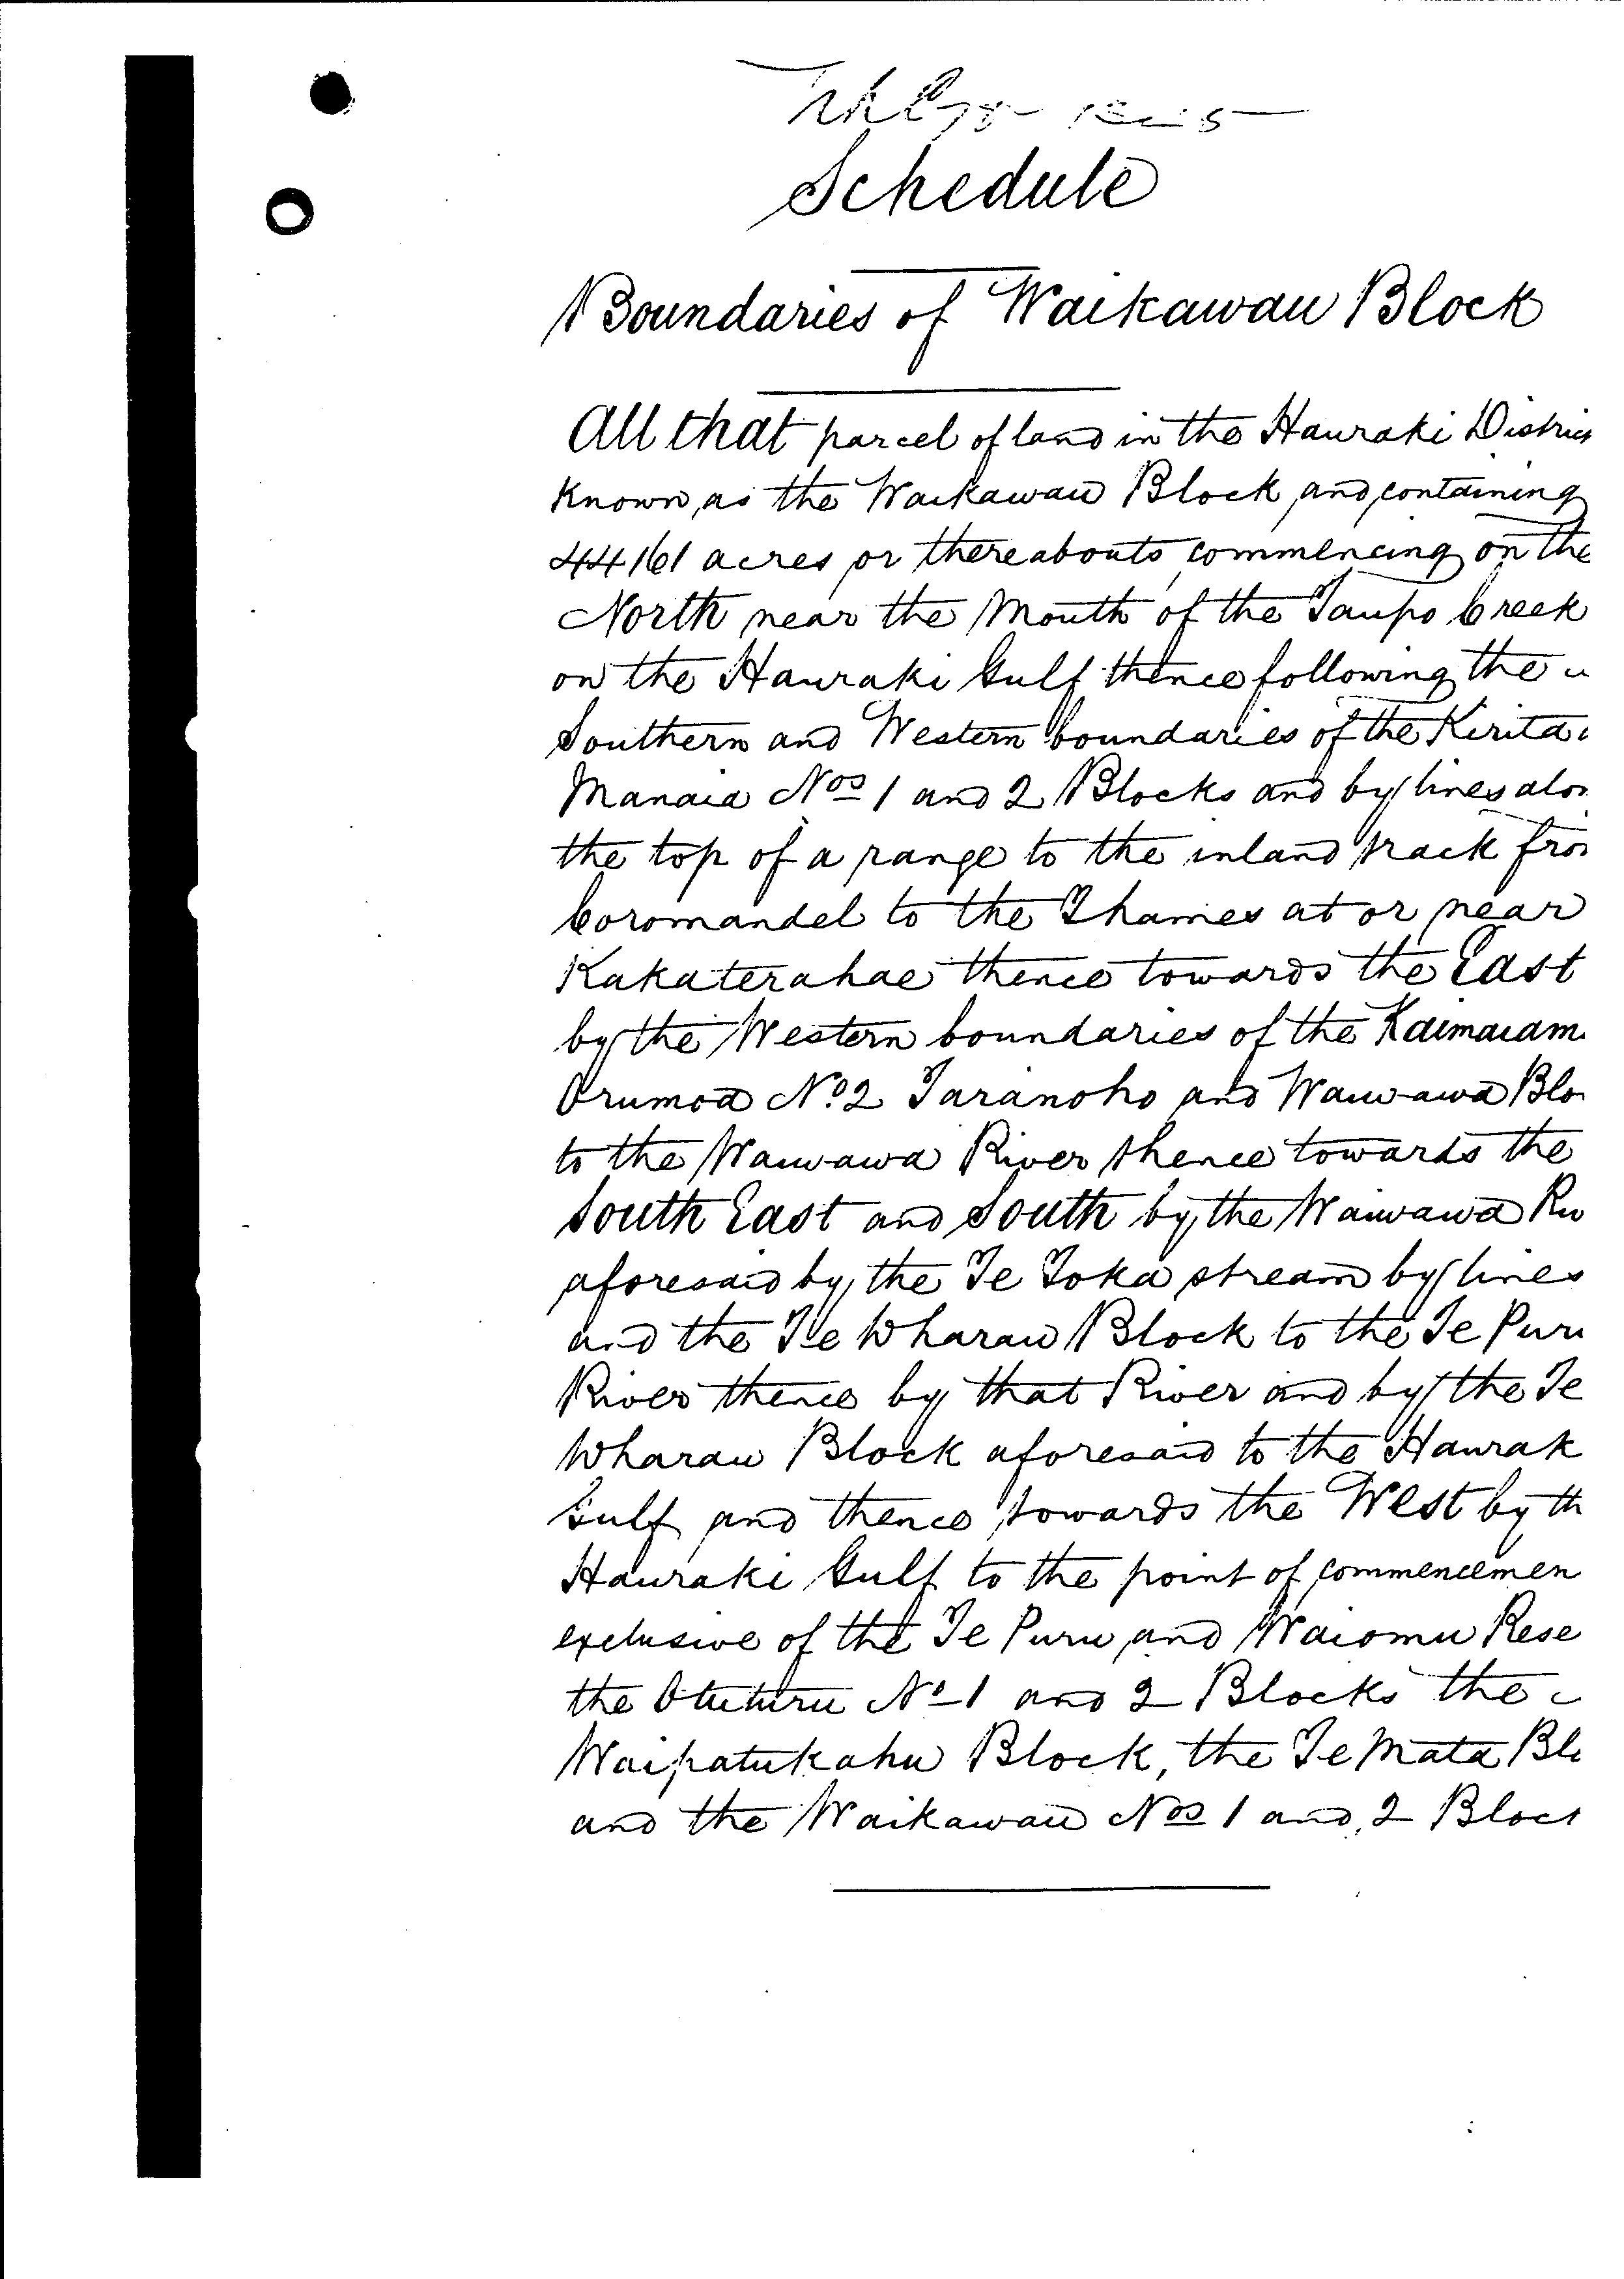 Schedule
Boundaries of Waikawau Block
All that parcel of land in the Hauraki Distric
Known as the Waikawau Block and containing
44161 acres or thereabouts commencing on the
North near the Mouth of the Taupo Creek
on the Hauraki Gulf thence following the
Southern and Western boundaries of the Kirita
Manaia Nos 1 and 2 Blocks and by lines alon
the top of a range to the inland track fro
Coromandel to the Thames at or near
Kakaterahae thence towards the East
by the Western boundaries of the Kaimaiam
Orumoa No. 2 Taranoho and Wauwawa Blo
to the Wauwawa River thence towards the
South East and South by the Waiwawa Riv
aforesaid by the Te Toka stream by lines
and the Te Wharau Block to the Te Puru
River thence by that River and by the Te
Wharau Block aforesaid to the Haurak
Gulf and thence towards the West by th
Hauraki Gulf to the point of commencemen
exclusive of the Te Puru and Waiomu Rese
the Otuturu No 1 and 2 Blocks the
Waipatukahu Block, the Te Mata Blo
and the Waikawau Nos 1 and 2 Bloc